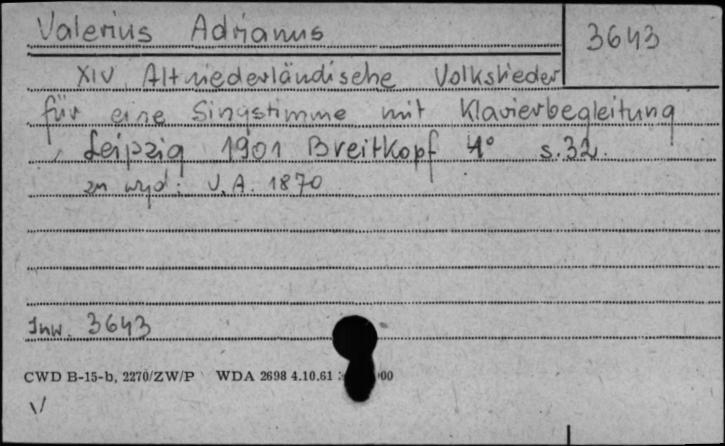 Valerius Adrianus 3643
XIV Altniederländische Volkslieder
für eine Singstimme mit Klavierbegleitung
Leipzig 1901 Breitkopf 4° s. 32.
zn wyd: V. A. 1870
Inw. 3643
CWD B-15-b, 2270/ZW/P WDA 2698 4.10.61